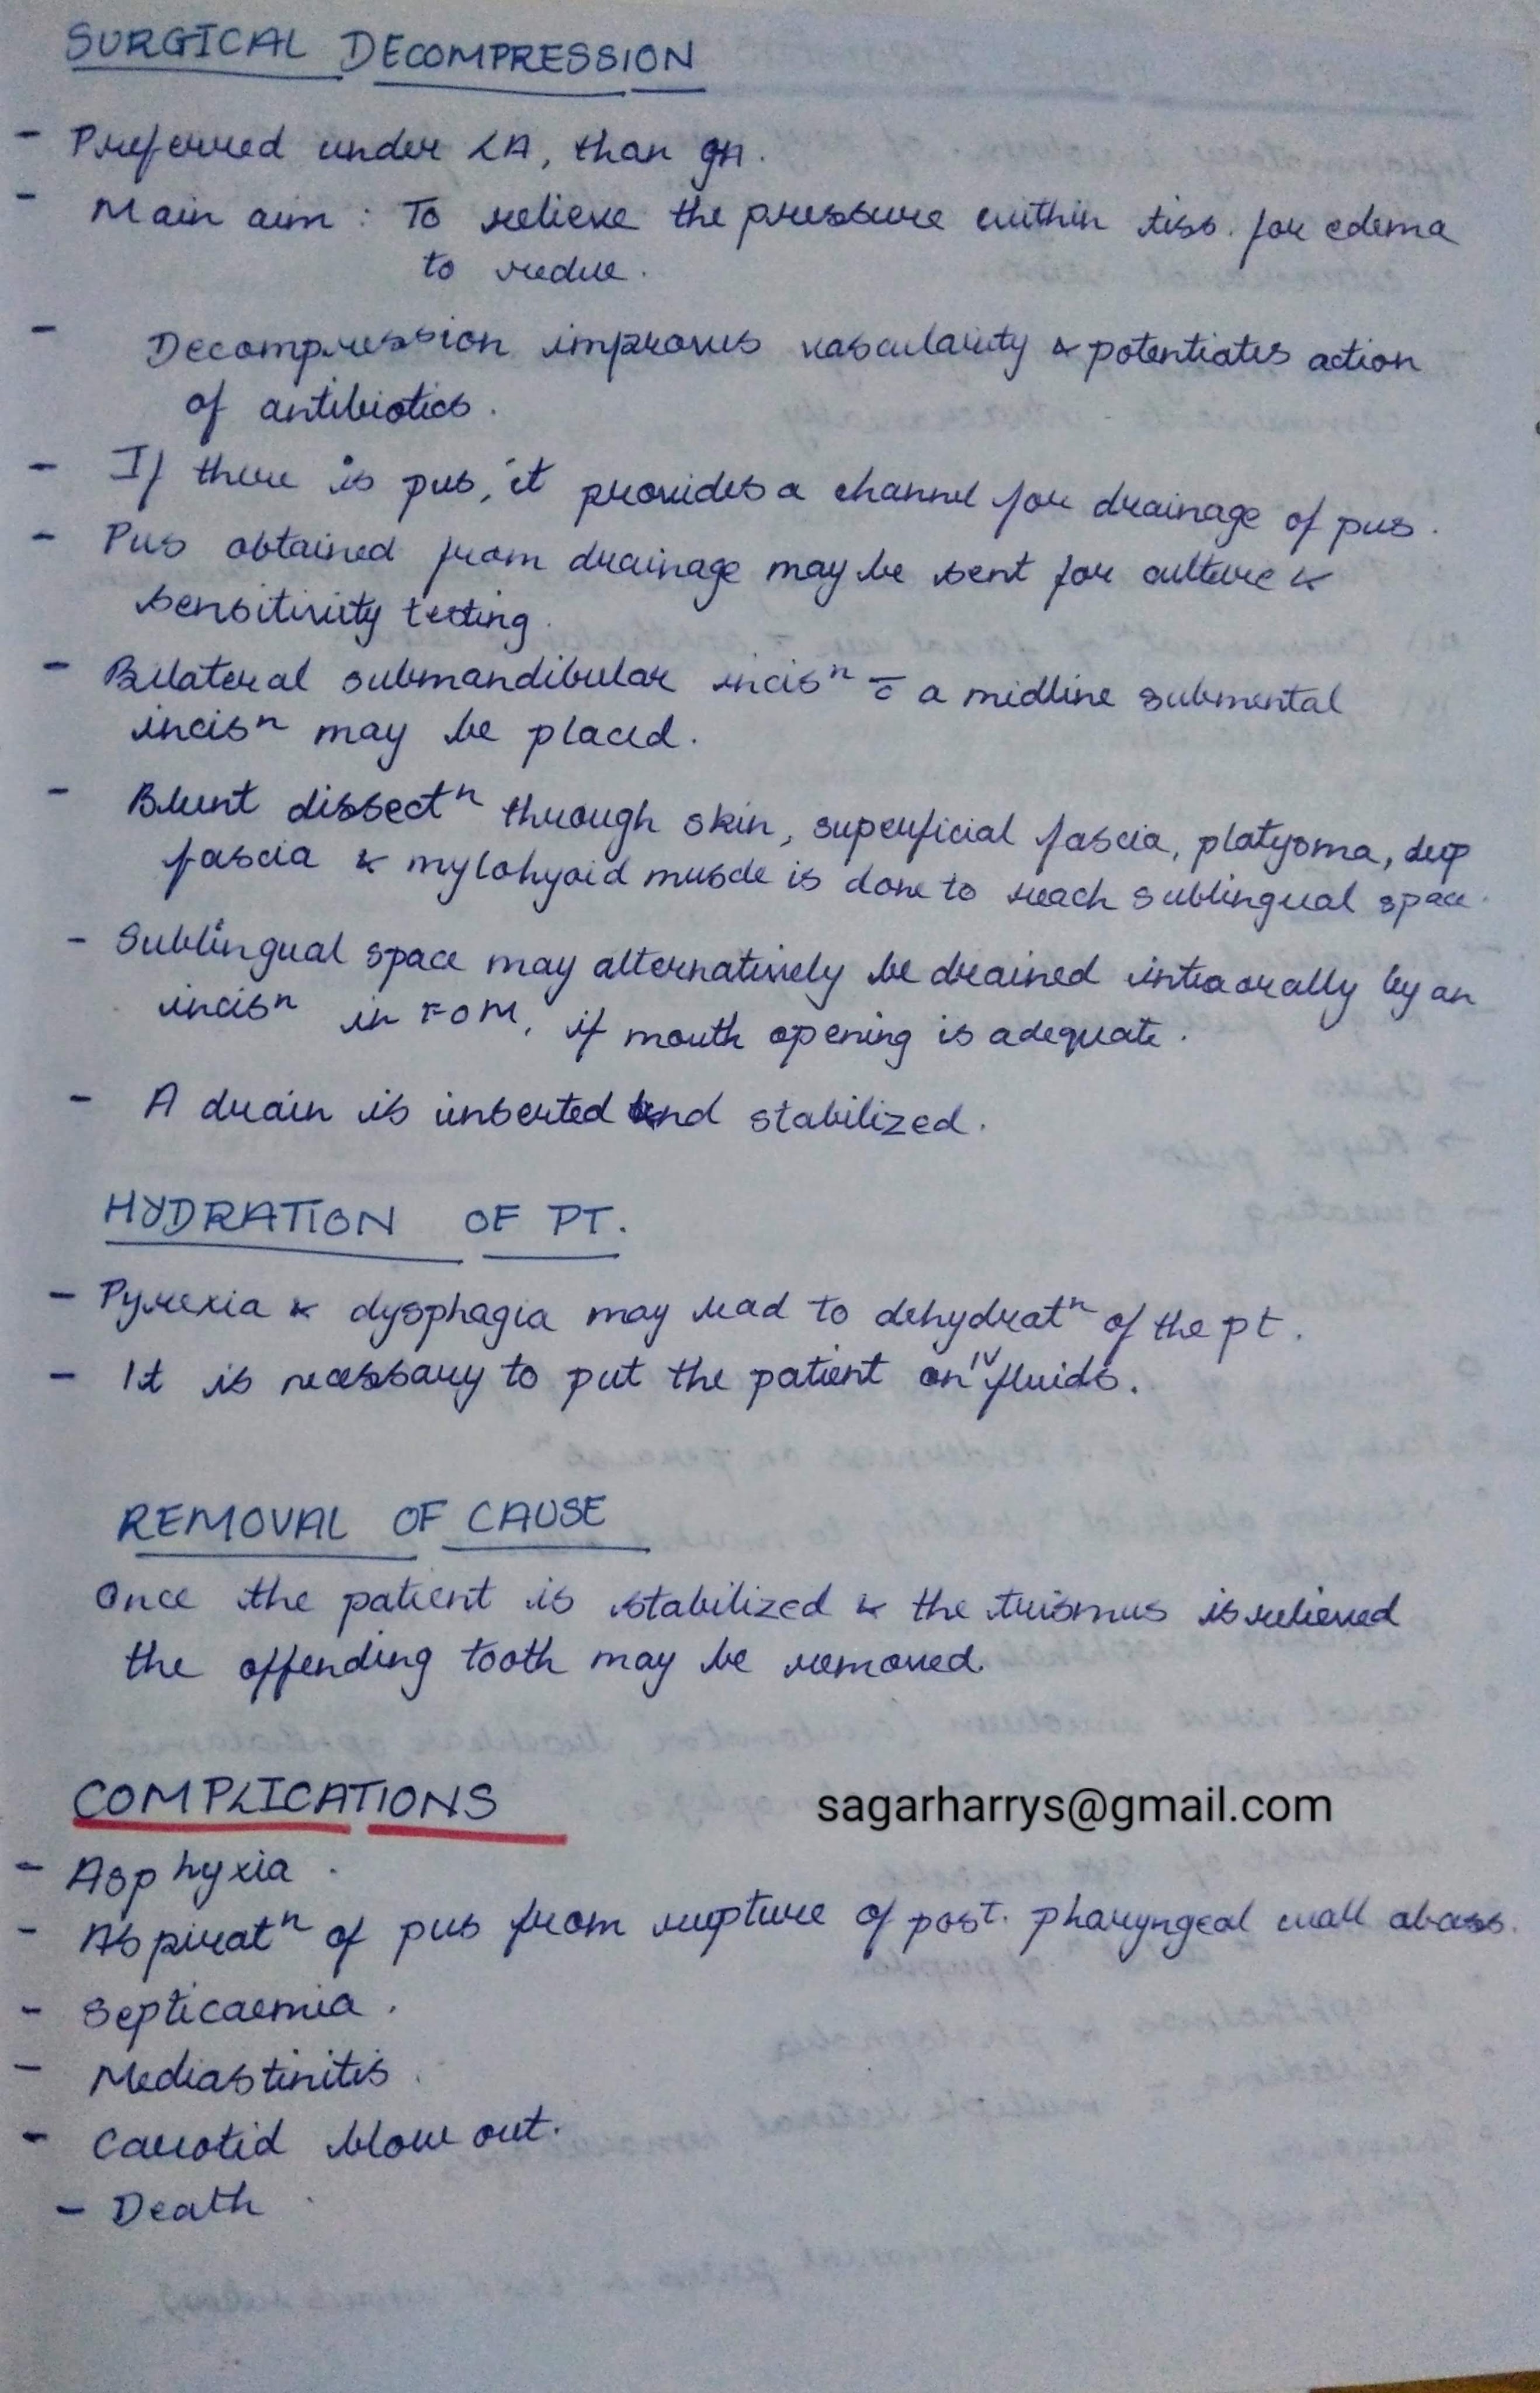 SURGICAL DECOMPRESSION
- Preferred under LA, than GA.
- Main aim : To relieve the pressure within tiss. for edema
to redue.
- Decompression improves vascularity & potentiates action
of antibiotics.
- If there is pus, it provides a channel for drainage of pus.
- Pus obtained from drainage may be sent for culture &
sensitivity testing.
- Bilateral submandibular incisⁿ c̄ a midline submental
incisⁿ may be placed.
- Blunt dissectⁿ through skin, superficial fascia, platysma, deep
fascia & mylohyoid muscle is done to reach sublingual space.
- Sublingual space may alternatively be drained intraorally by an
incisⁿ in FOM, if mouth opening is adequate.
- A drain is inserted and stabilized.
HYDRATION OF PT.
- Pyrexia & dysphagia may lead to dehydratⁿ of the pt.
- It is necessary to put the patient on IV fluids.
REMOVAL OF CAUSE
Once the patient is stabilized & the trismus is relieved
the offending tooth may be removed.
COMPLICATIONS
sagarharrys@gmail.com
- Asphyxia.
- Aspiratⁿ of pus from rupture of post. pharyngeal wall abcess.
- Septicaemia.
- Mediastinitis.
- Carotid blow out.
- Death.